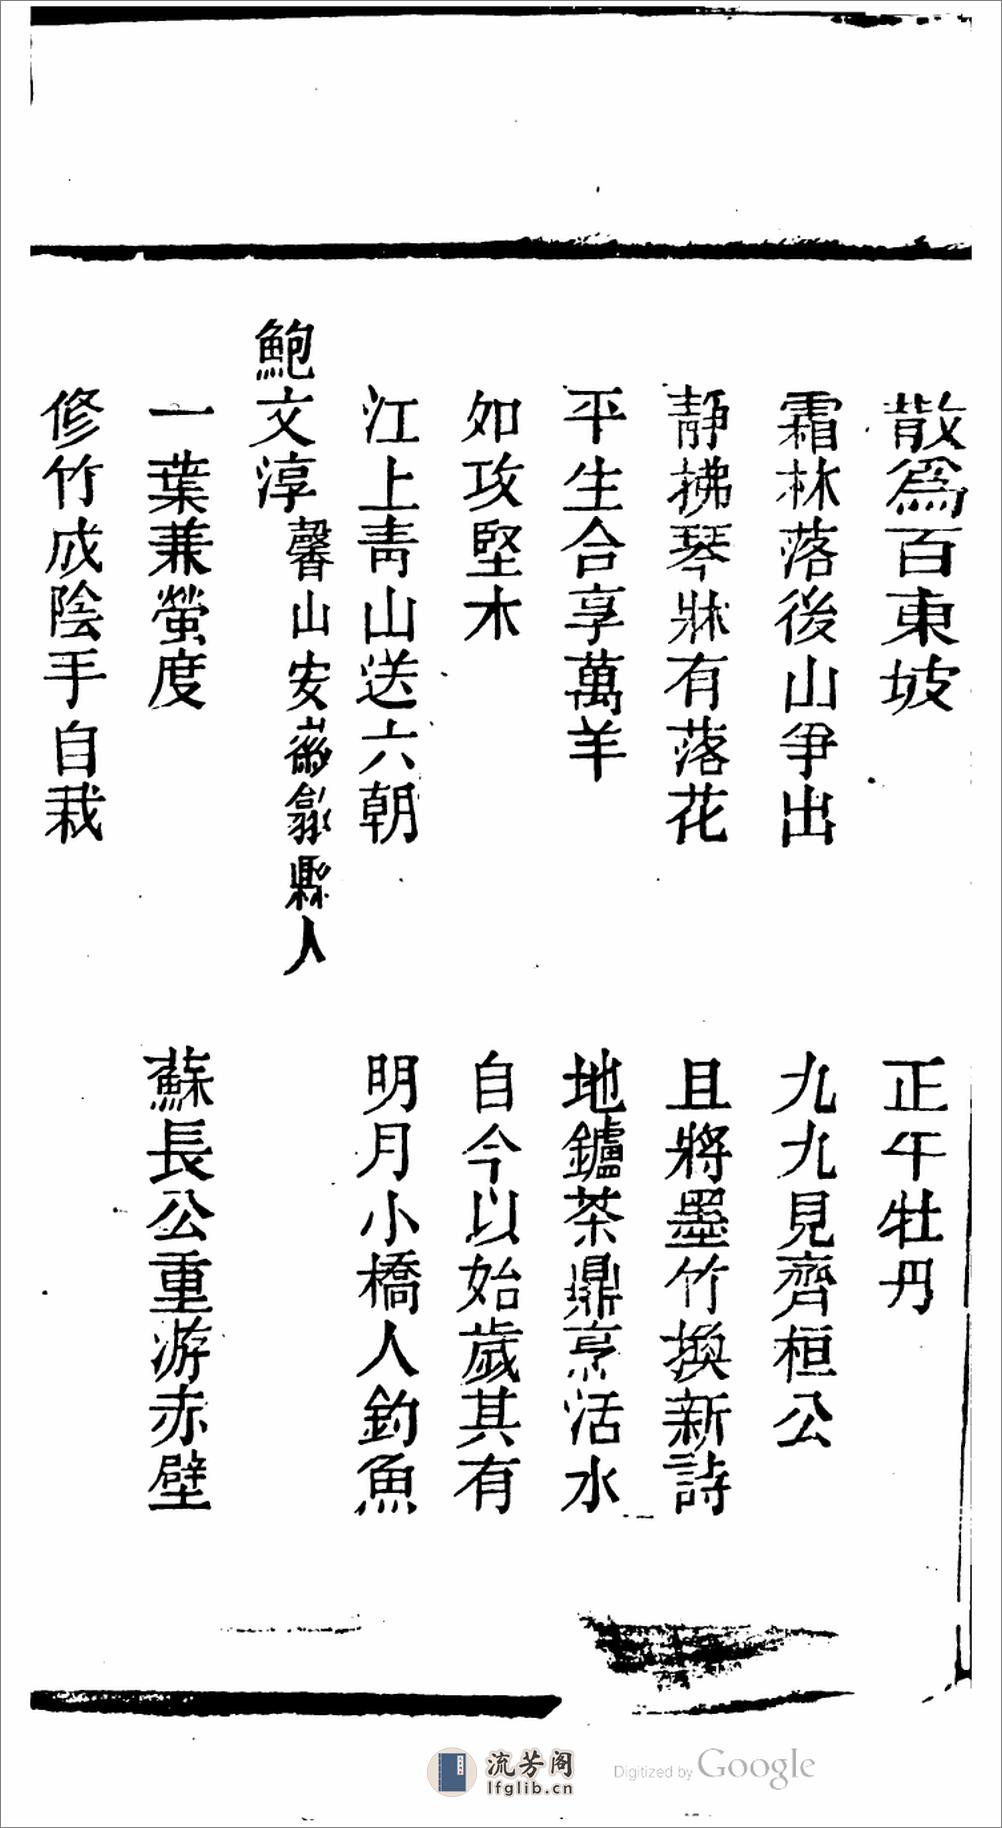 散爲百東坡　正午牡丹
霜林落後山爭出　九九見齊桓公
靜拂琴牀有落花　且將墨竹換新詩
平生合享萬羊　地鑪茶鼎烹活水
如攻堅木　自今以始歲其有
江上靑山送六朝　明月小橋人釣魚
鮑文淳 馨山安徽歙縣人
一葉兼螢度　蘇長公重游赤壁
修竹成陰手自栽
流芳阁
lfglib.cn
Digitized by Google